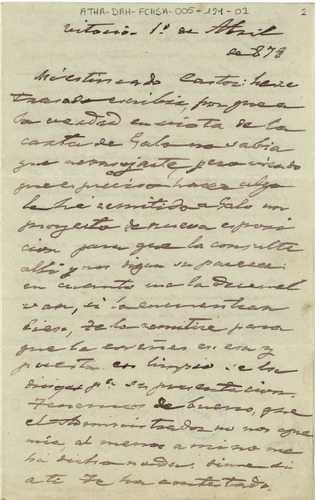 ATHA-DAH-FCHSA-005-121-02
2
Vitoria 1º de Abril
de 878
Mi estimado Carlos: he re
trasado escribir, porque a
la verdad en vista de la
carta de Galo no sabia
que aconsejarte, pero viendo
que es preciso hacer algo
he remitido a Galo un
proyecto de nueva exposi
cion para que la consulte
alli y nos digan su parecer.
en cuanto me la devuel
van, si la encuentran
bien, te la remitire para
que la enseñes en esa y
puesta en limpio se la
dirijas pª su presentacion.
Tenemos de bueno, que
el Administrador no nos apre
mia al menos a mi no me
ha dicho nada, dime si
a ti te ha contestado,